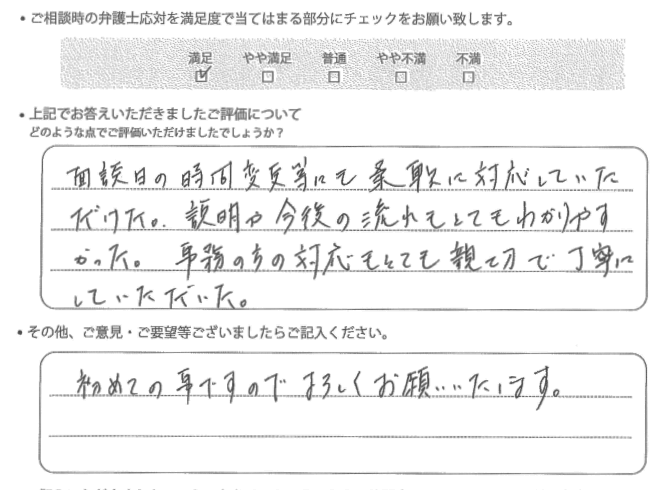 ・ご相談時の弁護士応対を満足度で当てはまる部分にチェックをお願い致します。
満足 やや満足 普通 やや不満 不満
☑ □ □ □ □
・上記でお答えいただきましたご評価について
どのような点でご評価いただけましたでしょうか？
面談日の時間変更等にも柔軟に対応していた
だけた。説明や今後の流れもとてもわかりやす
かった。事務の方の対応もとても親切で丁寧に
していただいた。
・その他、ご意見・ご要望等ございましたらご記入ください。
初めての事ですのでよろしくお願いいたします。